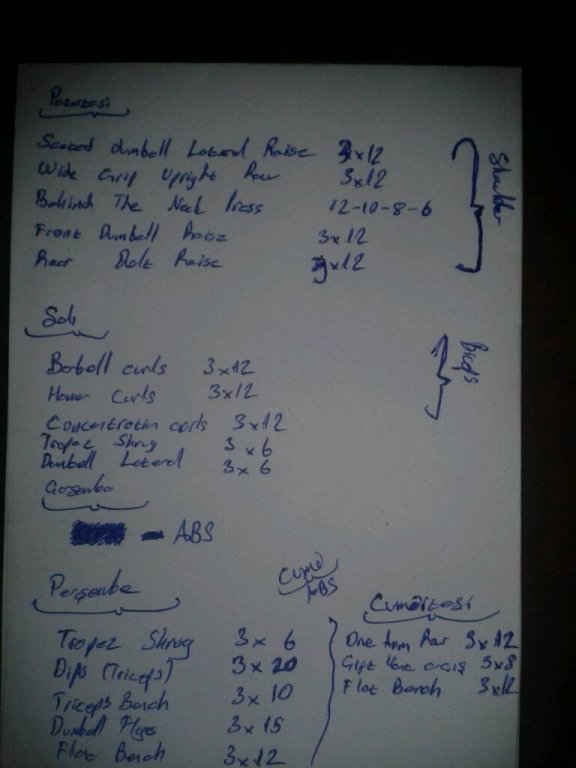 Pazartesi
Seated dumbell Lateral Raise 3x12
Wide Grip Upright Row 3x12
Behind The Neck Press 12-10-8-6
Front Dumbell Raise 3x12
Rear Delt Raise 3x12
Shoulder
Salı
Barbell curls 3x12
Hamer Curls 3x12
Concentration curls 3x12
Trapez Shrug 3x6
Dumbell Lateral 3x6
Biceps
Çarşamba
- ABS
Perşembe
Trapez Shrug 3x6
Dips (Triceps) 3x20
Triceps Bench 3x10
Dumbell Flyes 3x15
Flat Bench 3x12
Cuma
ABS
Cumartesi
One Arm Row 3x12
Çift 3x8
Flat Bench 3x12